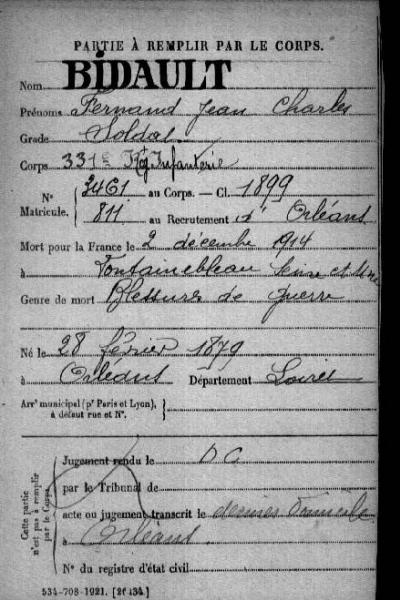 PARTIE À REMPLIR PAR LE CORPS.
Nom BIDAULT
Prénoms Fernand Jean Charles
Grade Soldat
Corps 331e Rég Infanterie
N° Matricule. { 3461 au Corps. — Cl. 1899
811 au Recrutement d' Orléans
Mort pour la France le 2 décembre 1914
à Fontainebleau Seine et Mne
Genre de mort Blessures de guerre
Né le 28 février 1879
à Orléans Département Loiret
Arrt municipal (pr Paris et Lyon), à défaut rue et N°. }
Cette partie n'est pas à remplir par le Corps.
Jugement rendu le D C
par le Tribunal de
acte ou jugement transcrit le dernier domicile
à Orléans.
N° du registre d'état civil
534-708-1921. [26434.]